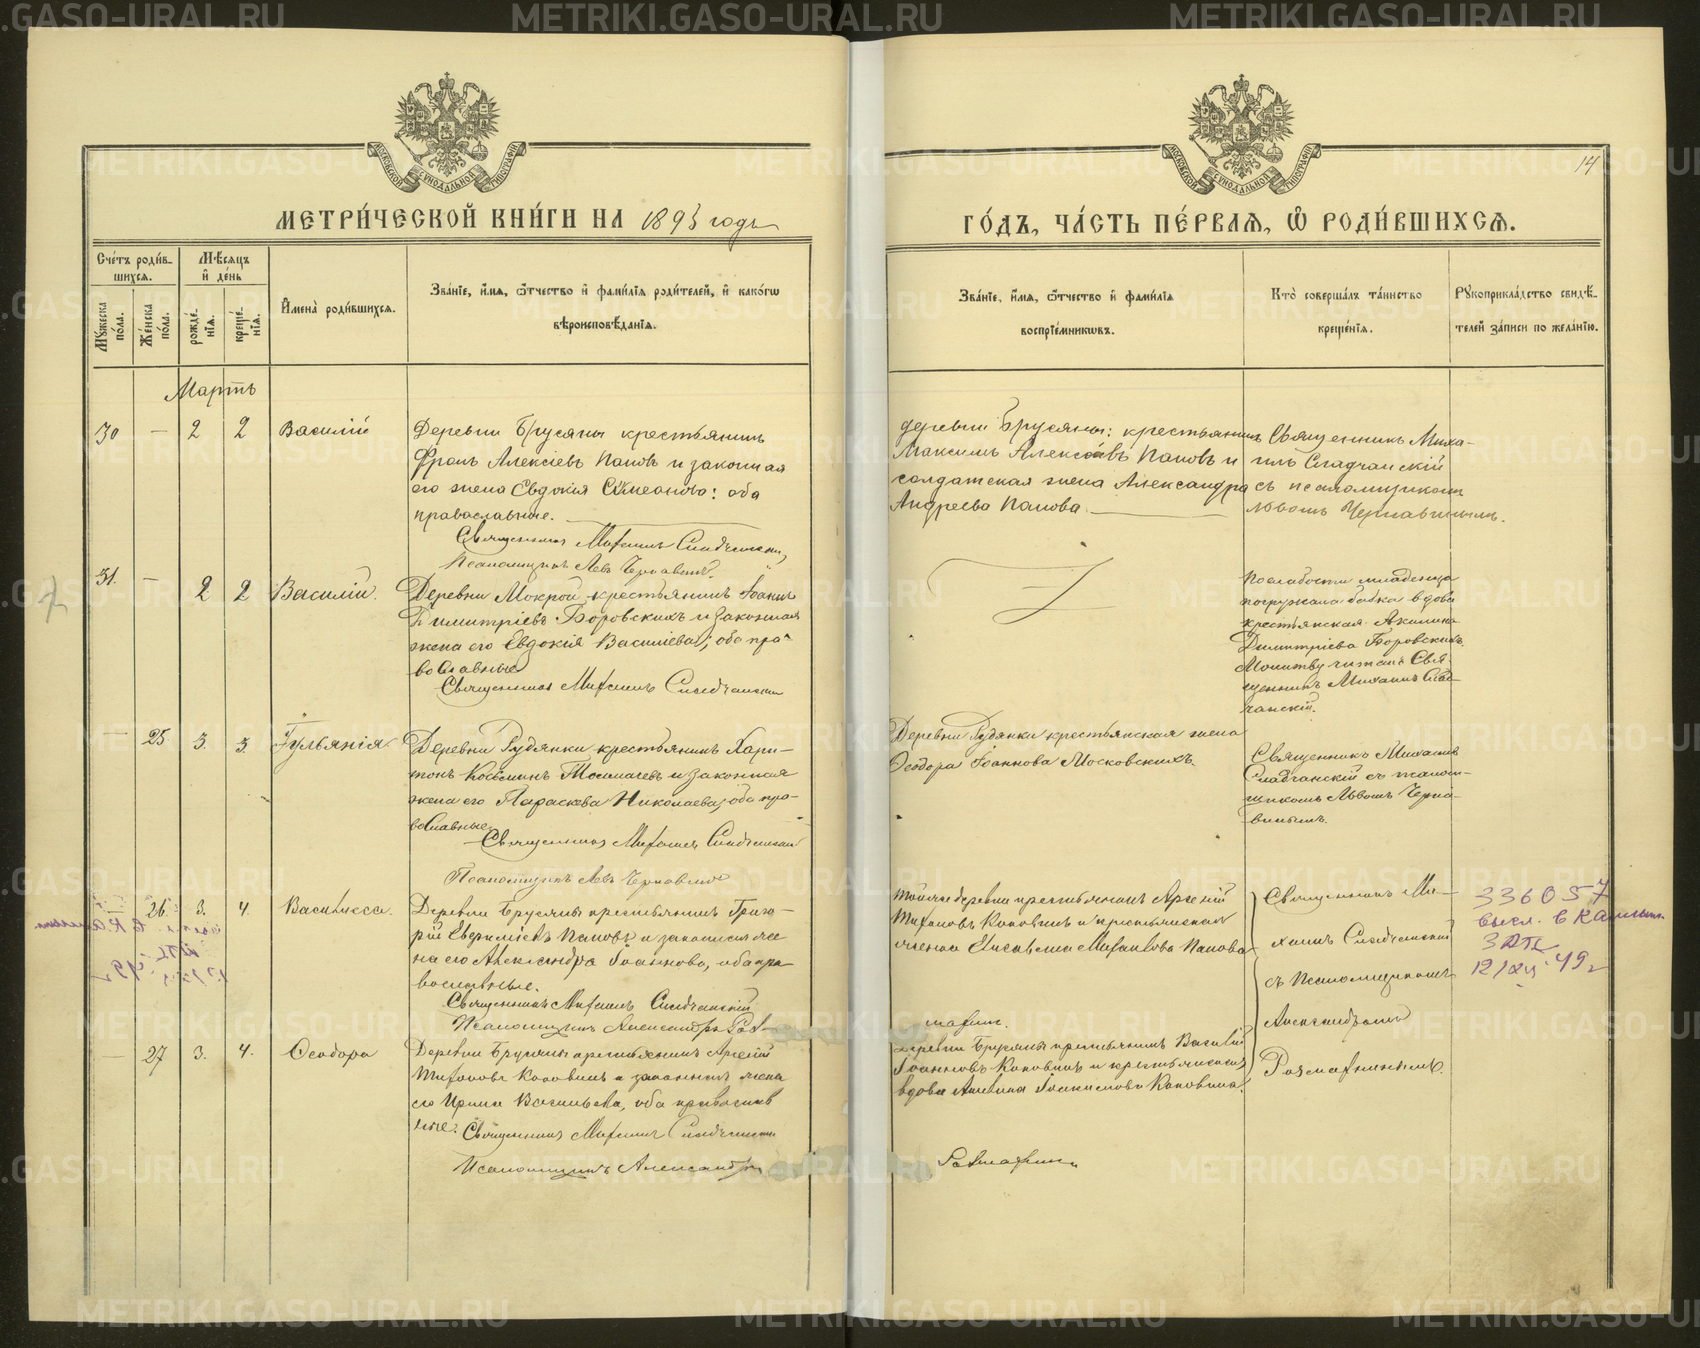 METRIKI.GASO-URAL.RU
МОСКОВСКОЙ СѴНОДАЛЬНОЙ ТИПОГРАФІИ
МЕТРИ́ЧЕСКОЙ КНИ́ГИ НА 1893 годъ
Сче́тъ роди́в-
шихся.
Мꙋ́жеска по́ла.
Же́нска по́ла.
Мѣ́сяцъ
и҆ де́нь
рожде́-
нїѧ.
креще́-
нїѧ.
И҆мена̀ роди́вшихсѧ.
Зва́нїе, и҆́мѧ, ѻ҆́тчество и҆ фами́лїѧ роди́телей, и҆ како́гѡ
вѣроисповѣ́данїѧ.
Мартъ
30 — 2 2 Василій
Деревни Брусяны крестьянинъ
Фролъ Алексіевъ Пановъ и законная
его жена Евдокія Сѵмеонова: оба
православные.
Священникъ Михаилъ Сладчанскій,
Псаломщикъ Левъ Чернавинъ.
31. — 2 2 Василій.
Деревни Мокрой крестьянинъ Іоаннъ
Димитріевъ Боровскихъ и законная
жена его Евдокія Василіева; оба пра-
вославные
Священникъ Михаилъ Сладчанскій
— 25 3. 3. Іульянія
Деревни Рудянки крестьянинъ Хари-
тонъ Косминъ Толмачевъ и законная
жена его Параскева Николаева; оба пра-
вославные.
Священникъ Михаилъ Сладчанскій
Псаломщикъ Левъ Чернавинъ
— 26. 3. 4. Василисса.
Деревни Брусяны крестьянинъ Григо-
рій Пановъ и законная же-
на его Александра Іоаннова, оба пра-
вославные.
Священникъ Михаилъ Сладчанскій
Псаломщикъ Александръ Роз-
— 27 3. 4. Ѳеодора
Деревни Брусяны крестьянинъ Арсеній
Тихоновъ Коковинъ и законная жена
его Ирина Васильева, оба православ
ные. Священникъ Михаилъ Сладчанскій
Псаломщикъ Александръ
14
МОСКОВСКОЙ СѴНОДАЛЬНОЙ ТИПОГРАФІИ
ГО́ДЪ, ЧА́СТЬ ПЕ́РВАЯ, Ѽ РОДИ́ВШИХСѦ.
Зва́нїе, и҆́мѧ, ѻ҆́тчество и҆ фами́лїѧ
воспрїе́мникѡвъ.
Кто̀ соверша́лъ та́инство
креще́нїѧ.
Рꙋкоприкла́дство свидѣ́-
телей за́писи по жела́нїю.
деревни Брусяны: крестьянинъ
Максимъ Алексіевъ Пановъ и
солдатская жена Александра
Андреева Панова.
Священникъ Миха-
илъ Сладчанскій
съ псаломщикомъ
Львомъ Чернавинымъ.
По слабости младенца
погружала бабка вдова
крестьянская Акилина
Димитріева Боровскихъ
Молитву читалъ Свя-
щенникъ Михаилъ Слад-
чанскій.
Деревни Рудянки крестьянская жена
Ѳеодора Іоаннова Московскихъ.
Священникъ Михаилъ
Сладчанскій съ псалом-
щикомъ Львомъ Черна-
винымъ.
той же деревни крестьянинъ Арсеній
Тихоновъ Коковинъ и крестьянская
жена Панова
Священникъ Ми-
хаилъ Сладчанскій
съ Псаломщикомъ
Александромъ
336057
высл. в
12/XII-49г
Деревни Брусяны крестьянинъ Василій
Іоанновъ Коковинъ и крестьянская
вдова Іоакимова Коковина.